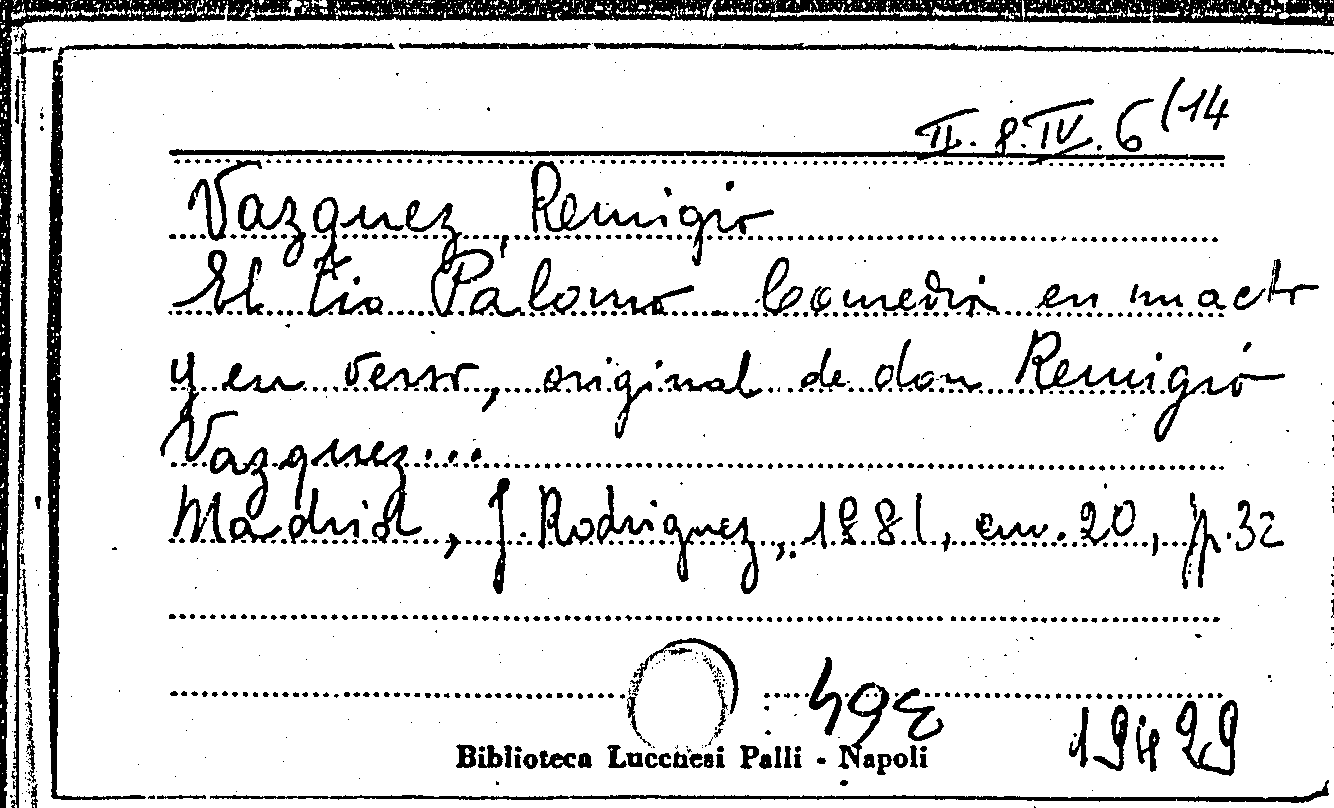 II. 8. IV. 6 (14
Vazquez, Remigio
El tio Palomo. Comedia en un acto
y en verso, original de don Remigio
Vazquez...
Madrid, J. Rodriguez, 1881, cm. 20, p. 32
Biblioteca Lucchesi Palli - Napoli
19429